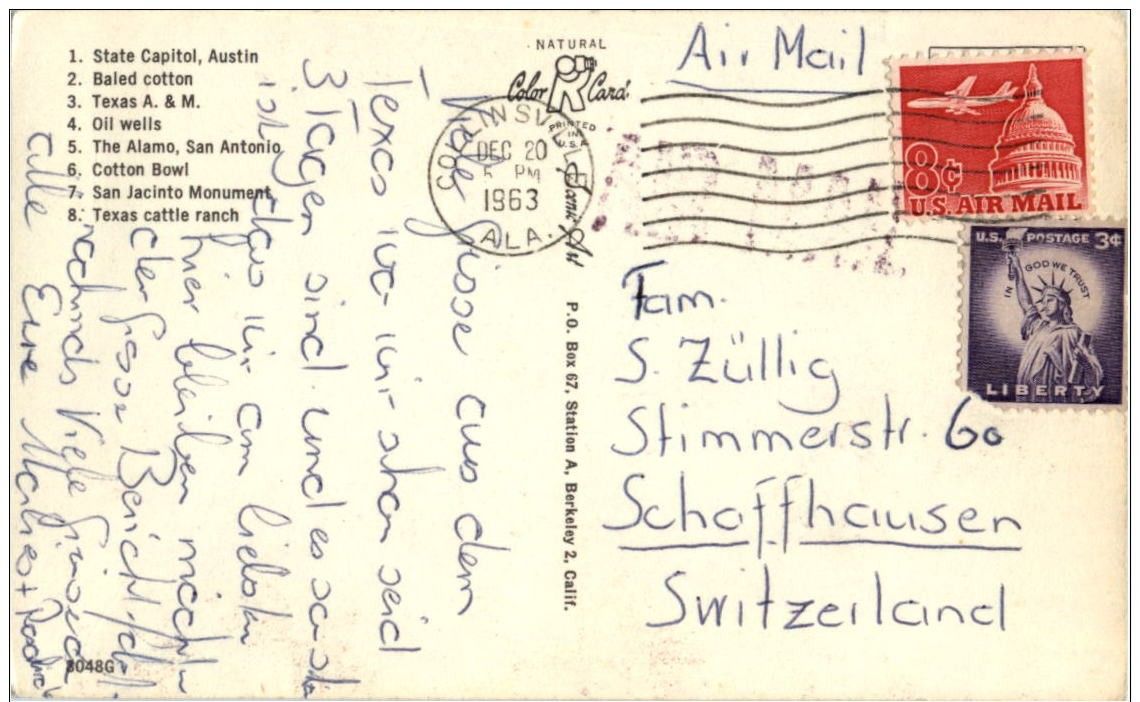 1. State Capitol, Austin
2. Baled cotton
3. Texas A. & M.
4. Oil wells
5. The Alamo, San Antonio
6. Cotton Bowl
7. San Jacinto Monument
8. Texas cattle ranch
3048G
NATURAL
Color Card
PRINTED
IN
U.S.A.
P.O. Box 67, Station A, Berkeley 2, Calif.
DEC 20
5 PM
1963
ALA.
Air Mail
8¢
U.S. AIR MAIL
U.S. POSTAGE 3¢
IN GOD WE TRUST
LIBERTY
Viele Grüsse aus dem
Texas wo wir schon seid
3 Tagen sind. Und es so
ist das wir am liebsten
hier bleiben möchten
der grosse Bericht
Viele Grüsse an
alle Eure Marlies +
Fam.
S. Züllig
Stimmerstr. 60
Schaffhausen
Switzerland